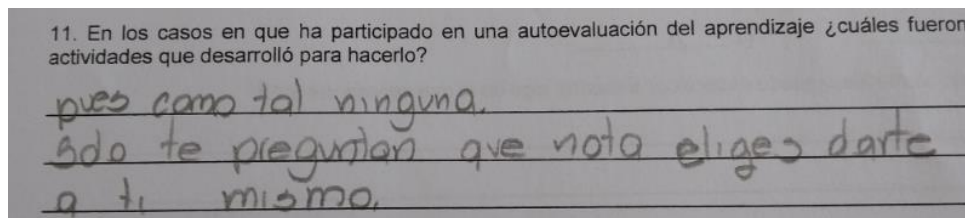 11. En los casos en que ha participado en una autoevaluación del aprendizaje ¿cuáles fueron
actividades que desarrolló para hacerlo?
pues como tal ninguna.
solo te preguntan que nota eliges darte
a ti mismo.